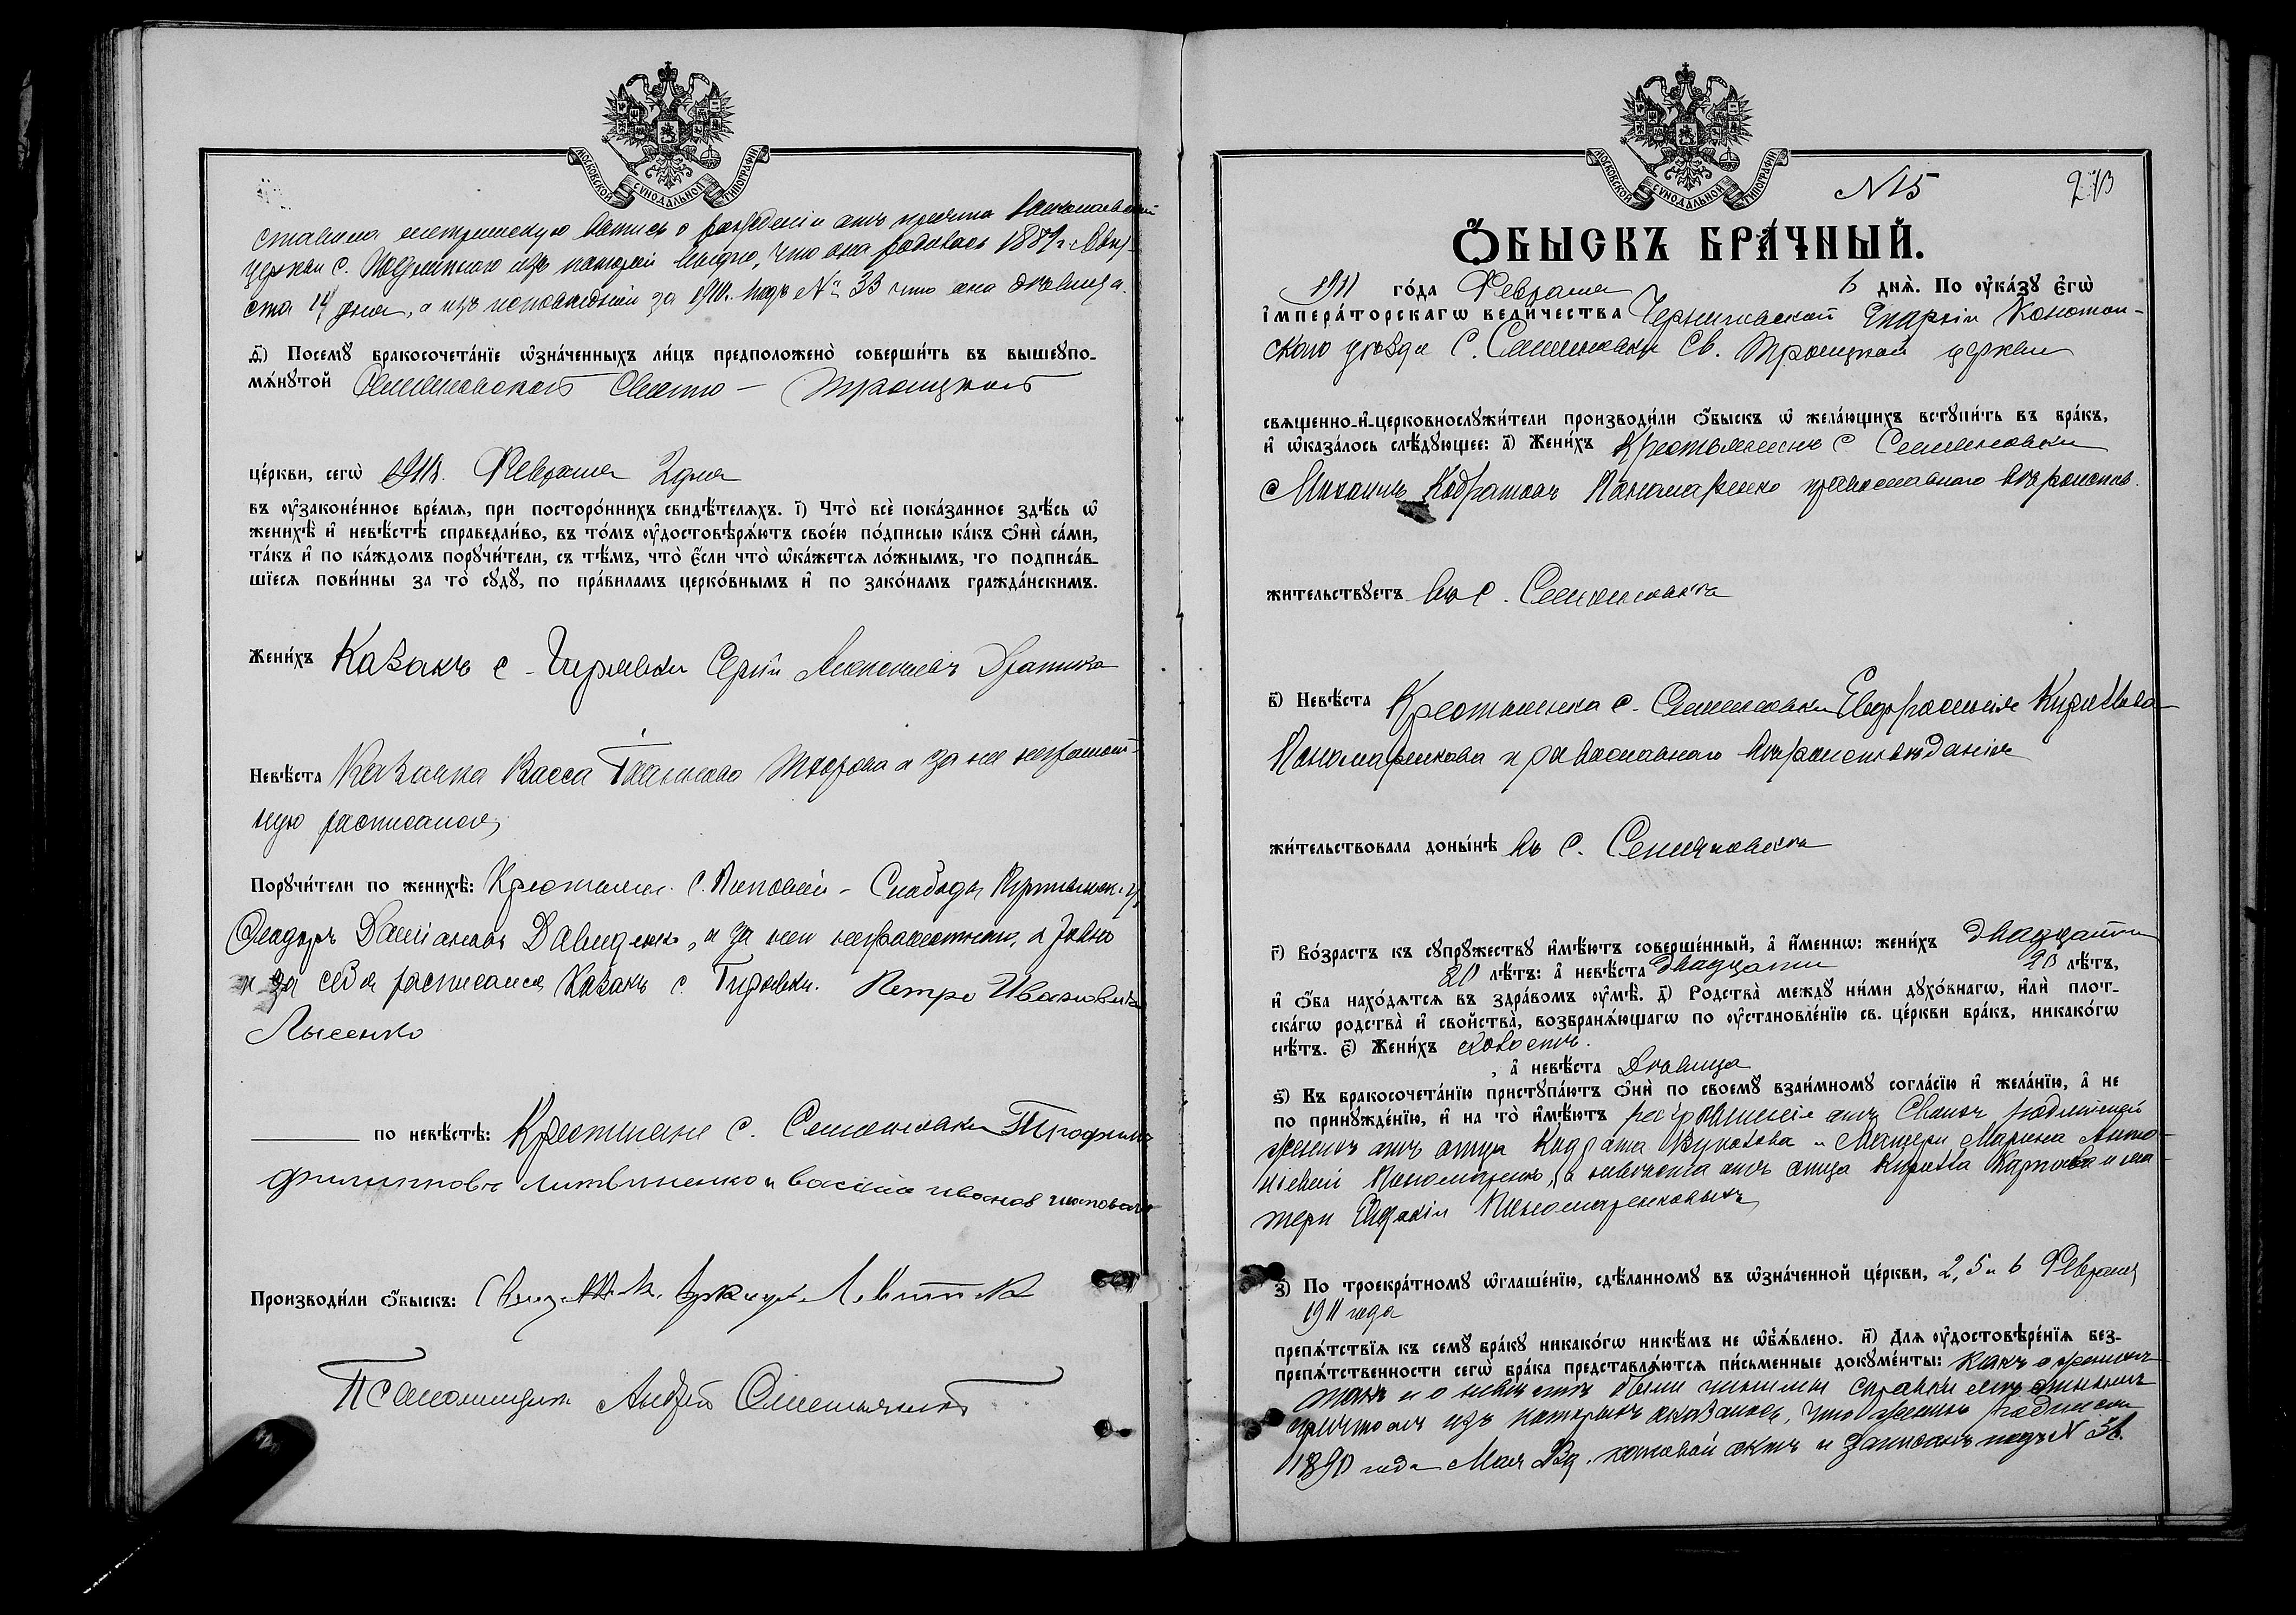 МОСКОВСКОЙ СѴНОДАЛЬНОЙ ТИПОГРАФІИ
ставила метрическую о рожденіи отъ причта
церкви с. изъ которой видно, что она родилась 188
ста 14 дня, а изъ исповѣдной за 1910 г. подъ № 33 что она дѣвица.
д҃) Посемꙋ̀ бракосочета́нїе ѡ҆зна́ченныхъ ли́цъ предположено̀ соверши́ть въ вышеꙋпо-
мѧ́нꙋтой Семеновской Свято - Троицкой
це́ркви, сегѡ̀ 1911 г. Февраля 2 дня
въ ᲂу҆законе́нное вре́мѧ, при посторо́ннихъ свидѣ́телѧхъ. і҃) Что̀ всѐ пока́занное здѣ́сь ѡ҆
женихѣ̀ и҆ невѣ́стѣ справедли́во, въ то́мъ ᲂу҆достовѣрѧ́ютъ свое́ю по́дписью ка́къ ѻ҆нѝ са́ми,
та́къ и҆ по ка́ждомъ порꙋчи́тели, съ тѣ́мъ, что̀ є҆́сли что̀ ѡ҆ка́жетсѧ ло́жнымъ, то подписа́в-
шїесѧ пови́нны за то̀ сꙋдꙋ̀, по пра́виламъ церко́внымъ и҆ по зако́намъ гражда́нскимъ.
Жени́хъ Казакъ с. Гирявки Сергій
Невѣ́ста Казачка Васса а за нее неграмот-
ную росписался
Порꙋчи́тели по женихѣ̀: Крестьян. с. Поповой - Слободы
Ѳеодоръ Даміановъ Давиденко, а за него неграмотнаго,
и за себя росписался Казакъ с. Гирявки. Петро Ивановичъ
Лысенко
по невѣ́стѣ: Крестьяне с. Семеновки Трофимъ
филиповъ литвиненко и василій иванов
Производи́ли ѻ҆́быскъ: Свящ.
Псаломщикъ Андрей
МОСКОВСКОЙ СѴНОДАЛЬНОЙ ТИПОГРАФІИ
N 15
Ѻ҆́БЫСКЪ БРА́ЧНЫЙ.
1911 го́да Февраля 6 днѧ̀. По ᲂу҆ка́зꙋ є҆гѡ̀
і҆мпера́торскагѡ вели́чества Черниговской Епархіи Конотоп-
скаго уѣзда С. Семеновки Св. Троицкой церкви
свѧщенно-и҆-церковнослꙋжи́тели производи́ли ѻ҆́быскъ ѡ҆ жела́ющихъ встꙋпи́ть въ бра́къ,
и҆ ѡ҆каза́лось слѣ́дꙋющее: а҃) Жени́хъ Крестьянинъ с. Семеновки
Михаилъ Кодратовъ Панамаренко православнаго
жи́тельствꙋетъ въ с. Семеновкѣ
в҃) Невѣ́ста Крестьянка с. Семеновки Евфросинія Кирилова
Понамаренкова православнаго вѣроисповѣданія
жи́тельствовала доны́нѣ въ с. Семеновкѣ
г҃) Во́зрастъ къ сꙋпрꙋ́жествꙋ и҆мѣ́ютъ соверше́нный, а҆ и҆́меннѡ: жени́хъ двадцати
20 лѣ́тъ: а҆ невѣ́ста двадцати 20 лѣ́тъ,
и҆ ѻ҆́ба нахо́дѧтсѧ въ здра́вомъ ᲂу҆мѣ̀. д҃) Родства̀ междꙋ̀ ни́ми дꙋхо́внагѡ, и҆лѝ плот-
ска́гѡ родства̀ и҆ свойства̀, возбранѧ́ющагѡ по ᲂу҆становле́нїю св. це́ркви бра́къ, никако́гѡ
нѣ́тъ. є҃) Жени́хъ холостъ.
, а҆ невѣ́ста Дѣвица
ѕ҃) Къ бракосочета́нїю пристꙋпа́ютъ ѻ҆нѝ по своемꙋ̀ взаи́мномꙋ согла́сїю и҆ жела́нїю, а҆ не
по принꙋжде́нїю, и҆ на то̀ и҆мѣ́ютъ отъ своихъ родителей
женихъ отъ отца Кодрата и Матери Марины Анто-
ніевой Пономаренко, а невѣста отъ отца Кирилла Карпова и ма
тери Евдокіи Пономаренковыхъ
з҃) По троекра́тномꙋ ѡ҆глаше́нїю, сдѣ́ланномꙋ въ ѡ҆зна́ченной це́ркви, 2, 5 и 6 Февраля
1911 года
препѧ́тствїѧ къ семꙋ̀ бра́кꙋ никако́гѡ никѣ́мъ не ѡ҆б̾ѧ́влено. и҃) Длѧ ᲂу҆достовѣре́нїѧ без-
препѧ́тственности сегѡ̀ бра́ка представлѧ́ютсѧ пи́сьменные докꙋме́нты: какъ о женихѣ
такъ и о невѣстѣ были справки
изъ которыхъ оказалось, что женихъ родился
1890 года Мая и записанъ подъ N 36.